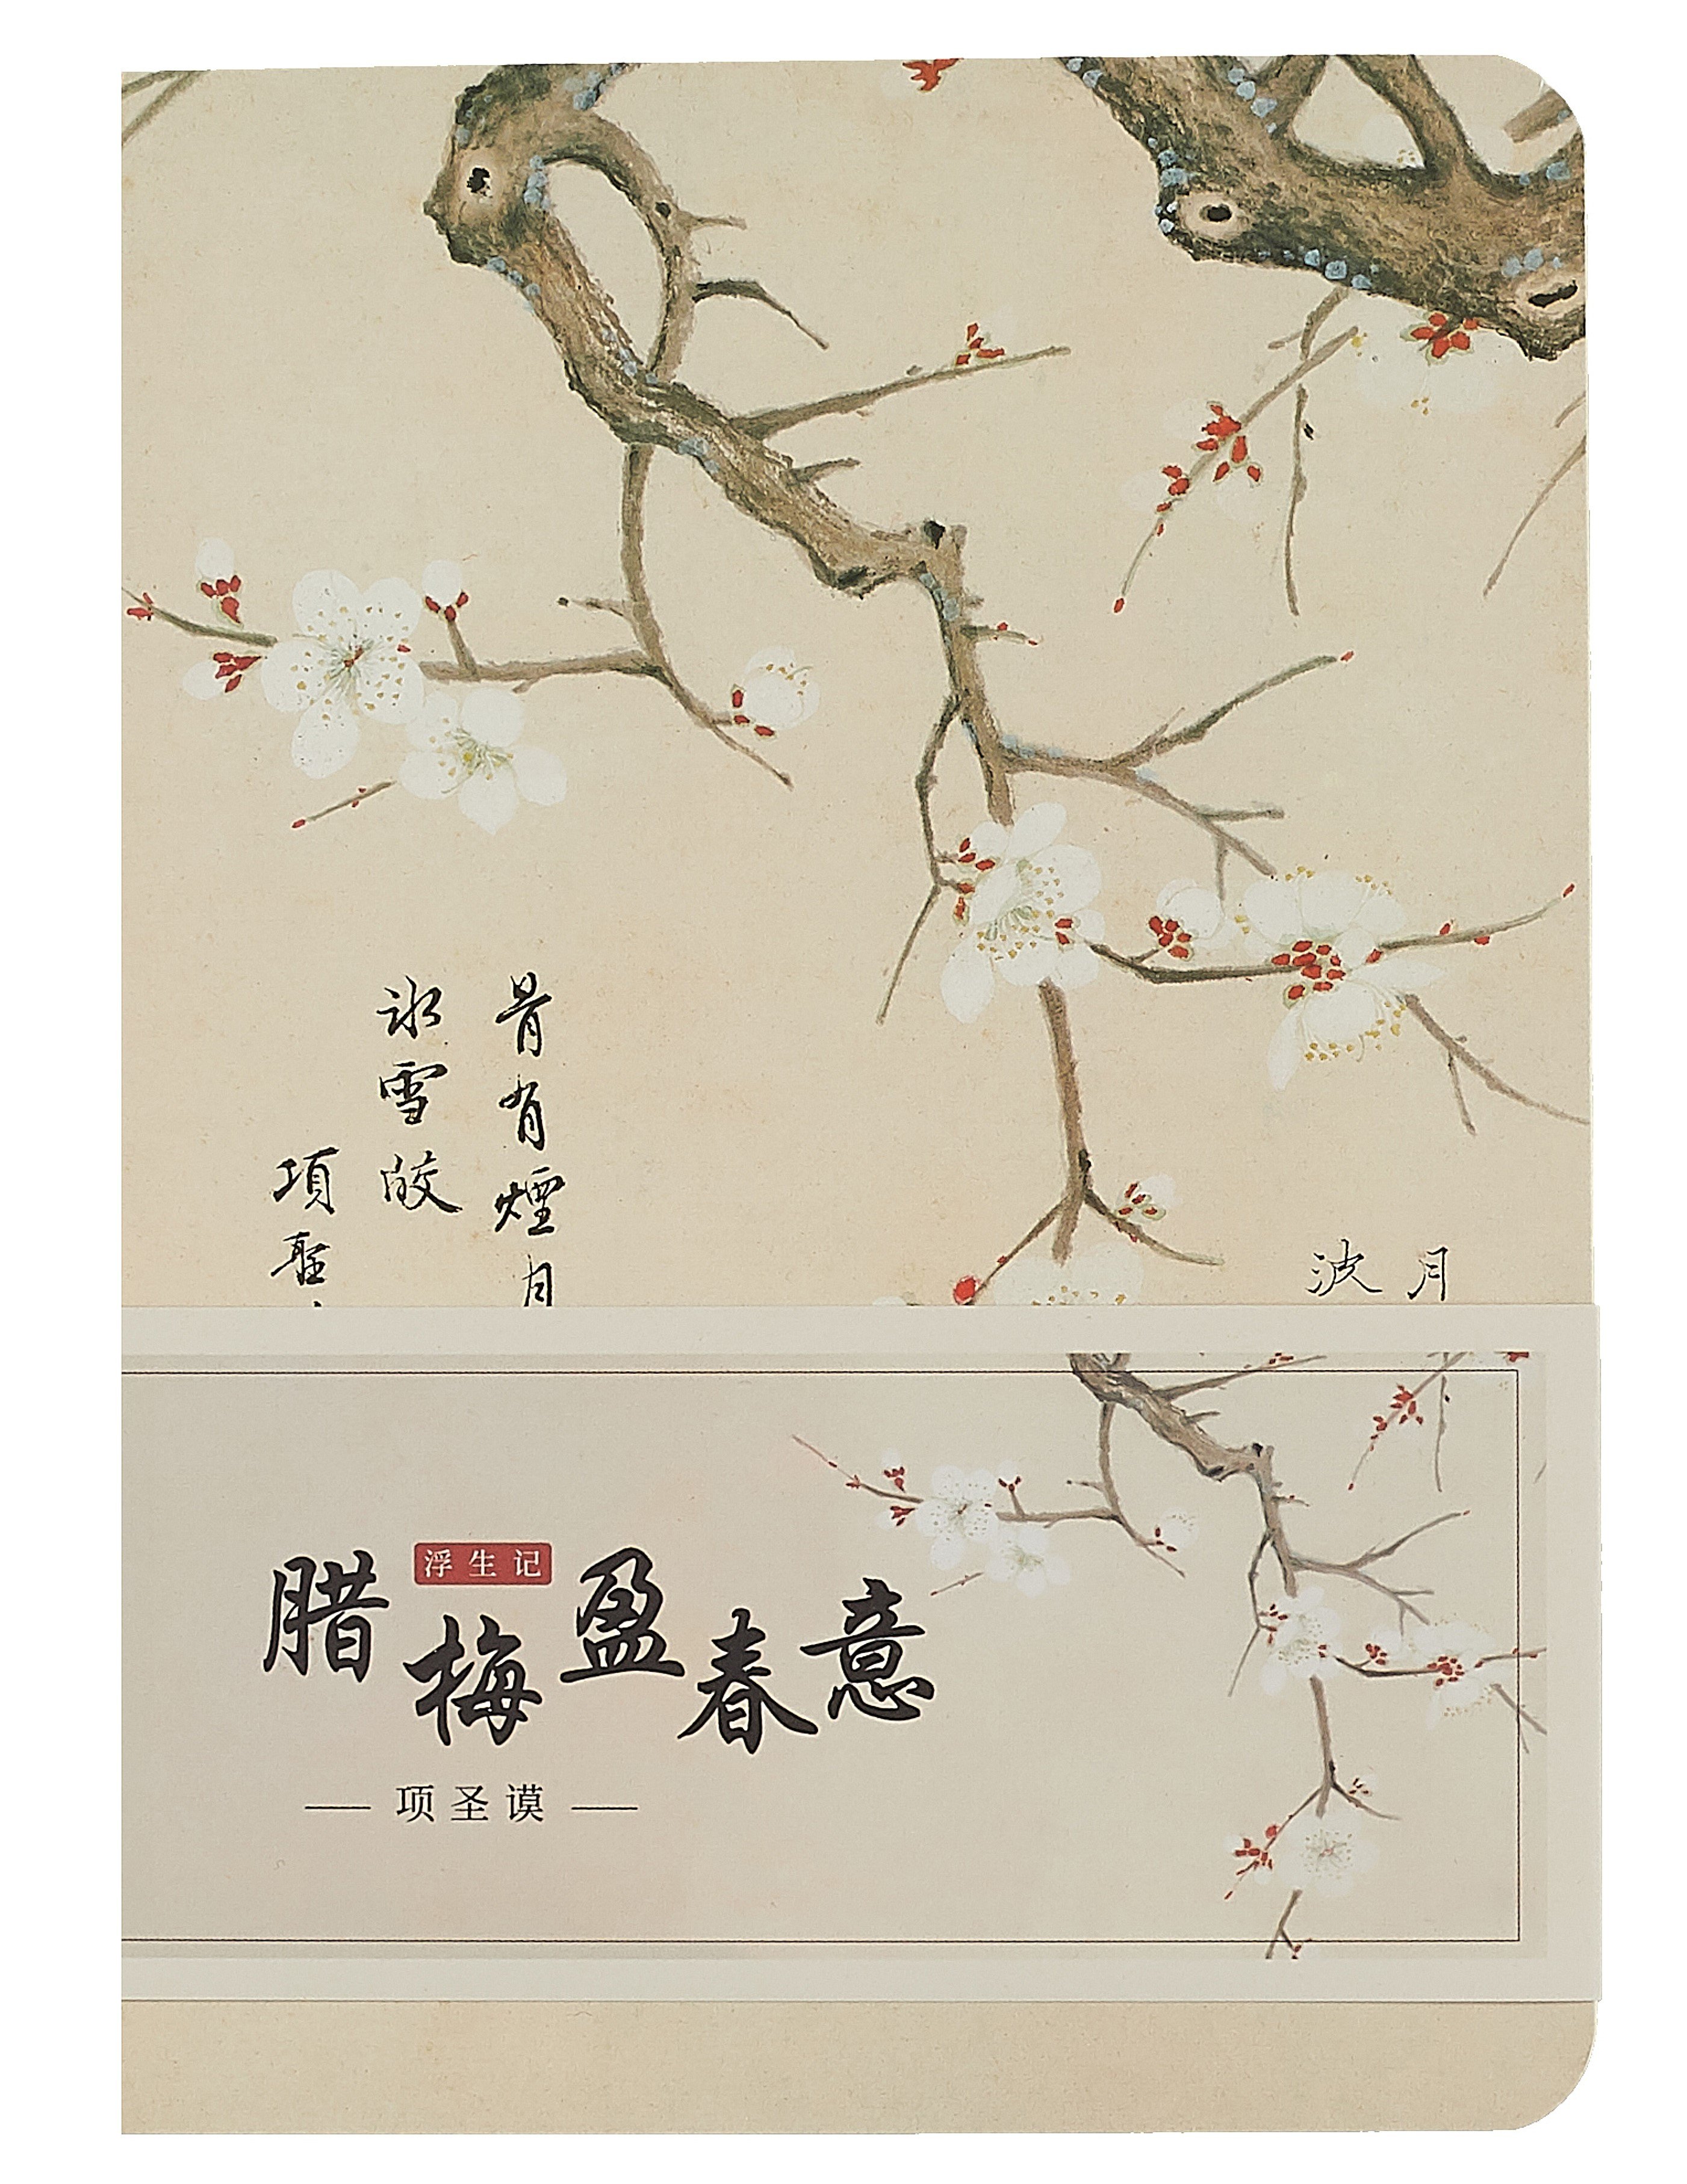 月
波
骨有煙月
冰雪皎
項聖
浮生记
腊梅盈春意
项圣谟